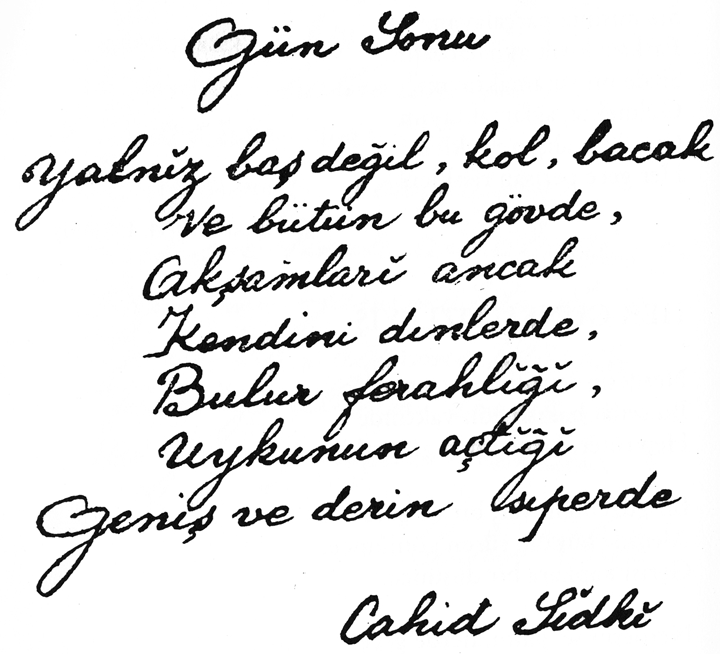 Gün Sonu
Yalnĭz baş değil, kol, bacak
Ve bütün bu gövde,
Akşamlarĭ ancak
Kendini dınlerde,
Bulur ferahlĭğĭ,
Uykunun açtĭğĭ
Geniş ve derin sıperde
Cahid Sĭdkĭ